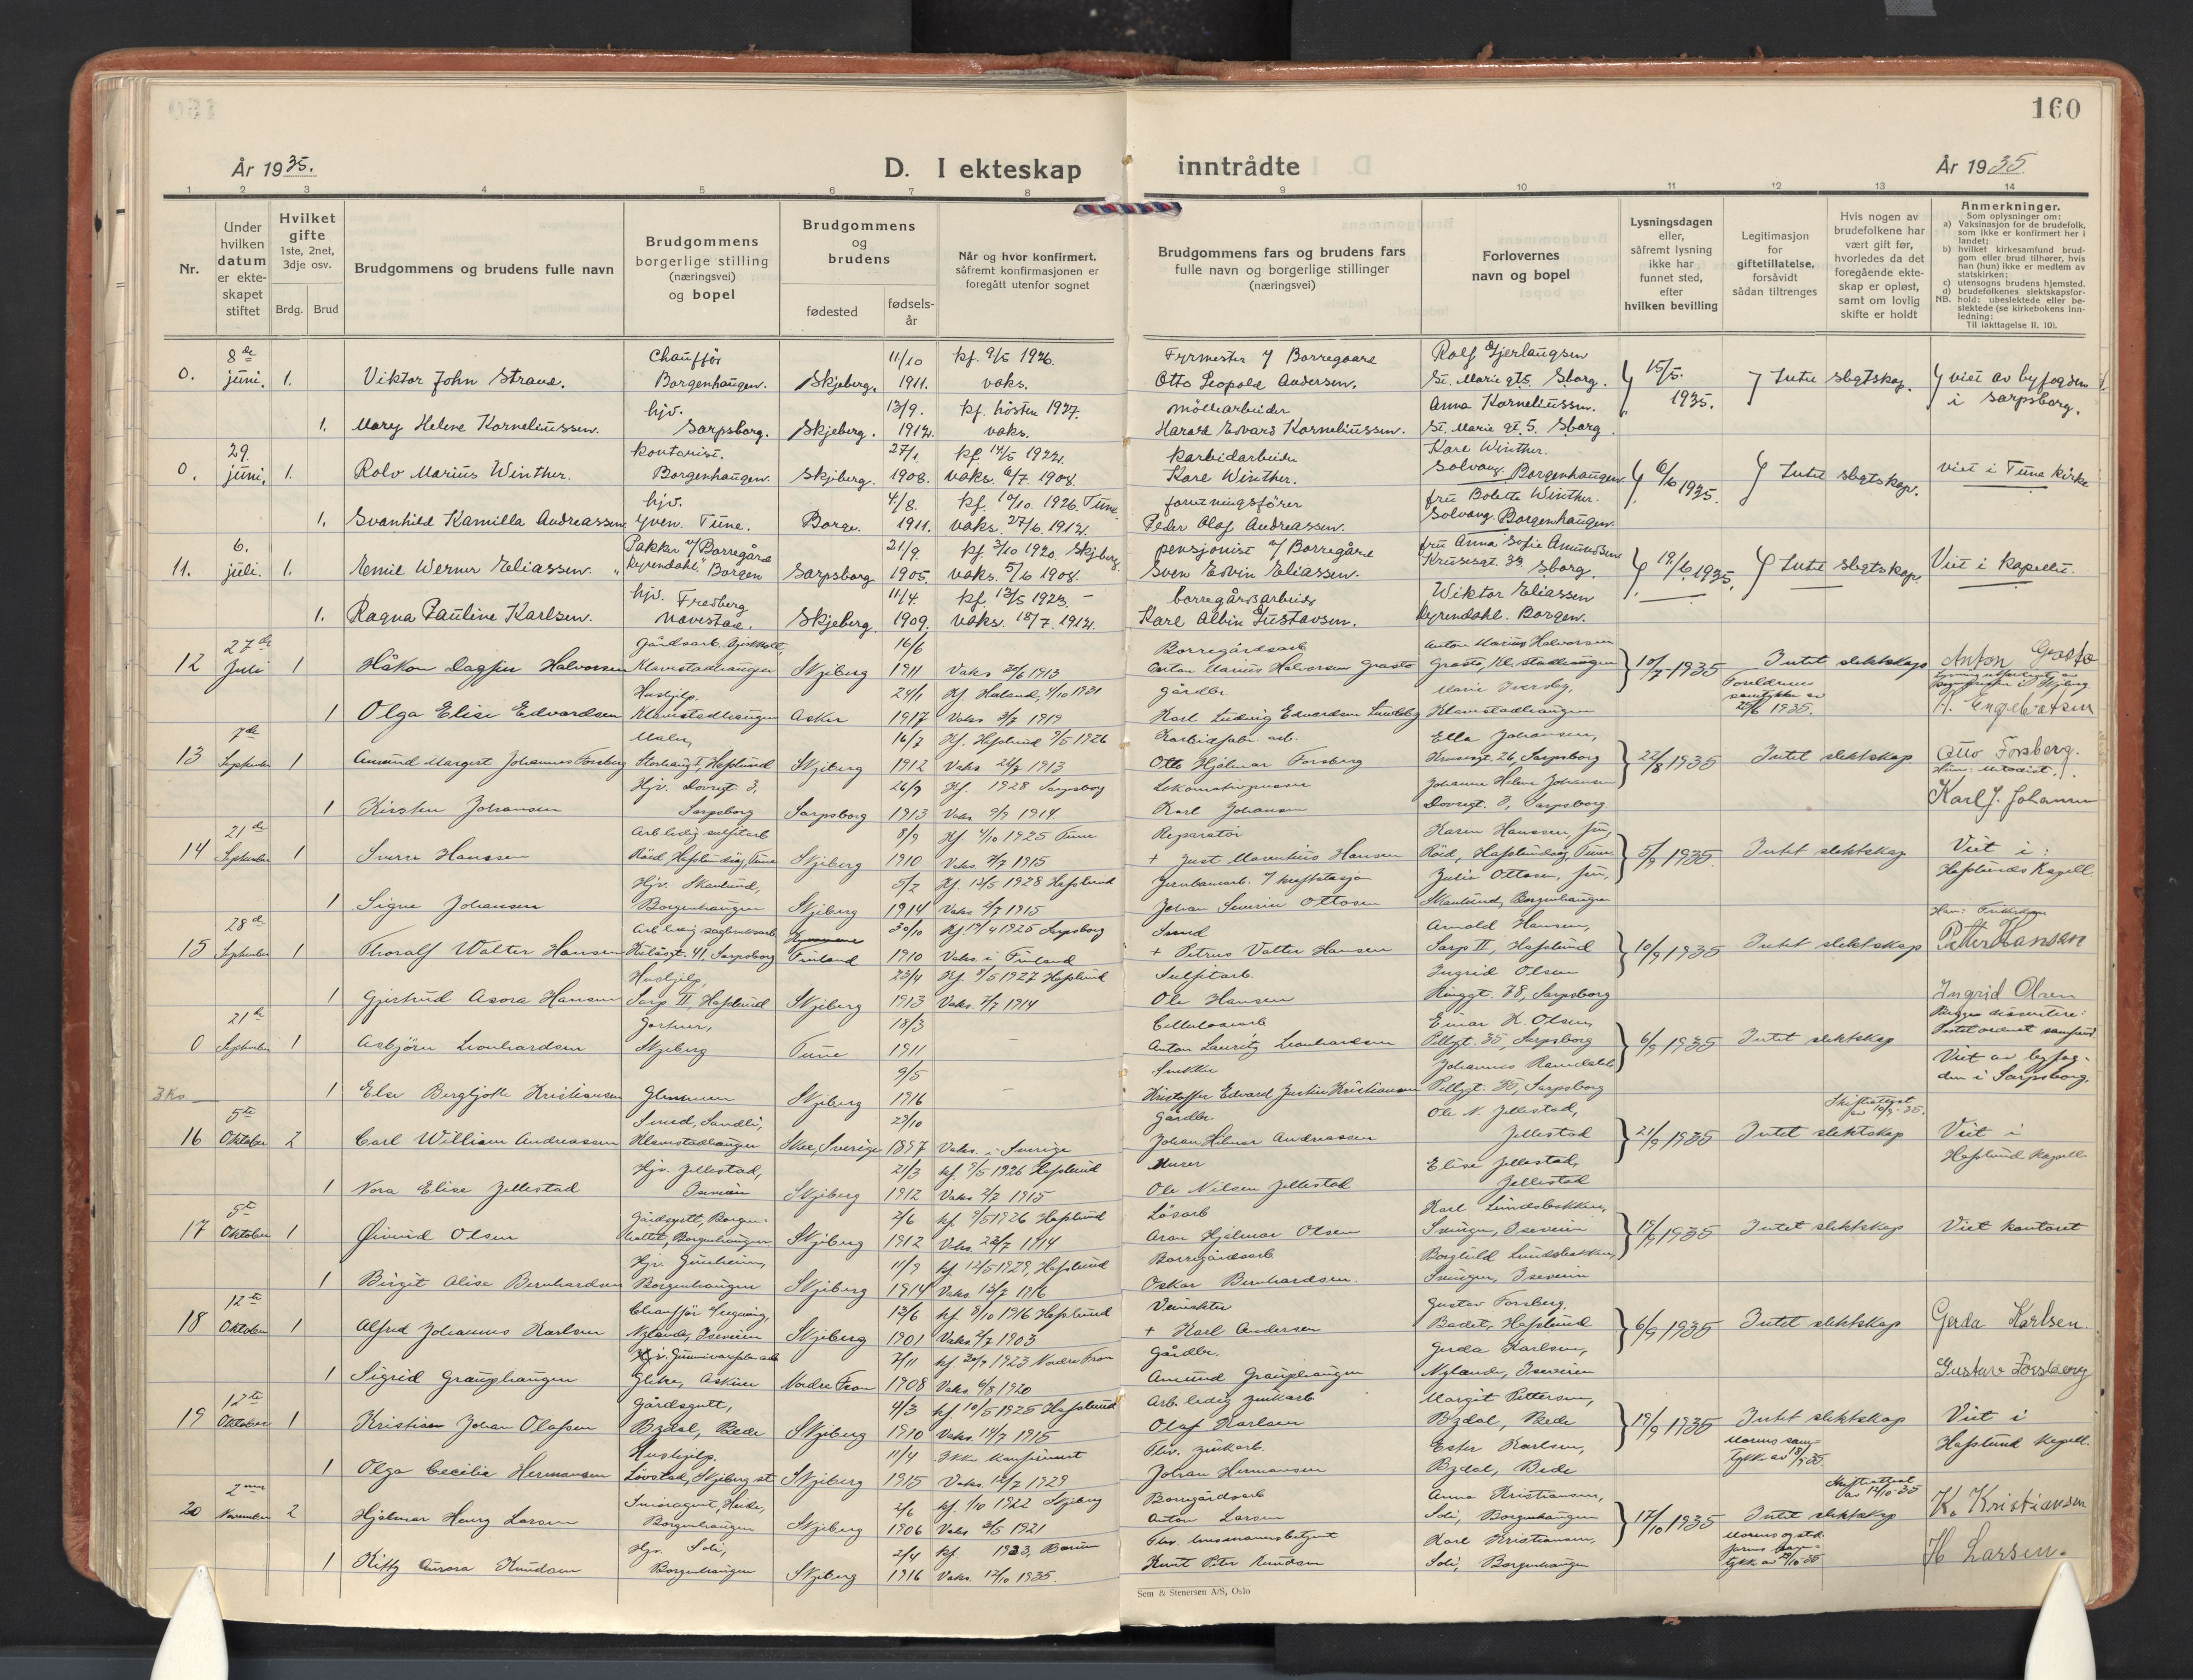 160
År 1935.
D. I ekteskap inntrådte
År 1935
1 2 3 4 5 6 7 8 9 10 11 12 13 14
Nr.
Under hvilken datum er ekteskapet stiftet
Hvilket gifte
1ste, 2net, 3dje osv.
Brdg. Brud
Brudgommens og brudens fulle navn
Brudgommens borgerlige stilling (næringsvei) og bopel
Brudgommens og brudens
fødested
fødsels-år
Når og hvor konfirmert.
såfremt konfirmasjonen er foregått utenfor sognet
Brudgommens fars og brudens fars
fulle navn og borgerlige stillinger
(næringsvei)
Forlovernes
navn og bopel
Lysningsdagen eller, såfremt lysning ikke har funnet sted, efter hvilken bevilling
Legitimasjon for giftetillatelse, forsåvidt sådan tiltrenges
Hvis nogen av brudefolkene har vært gift før, hvorledes da det foregående ekteskap er opløst, samt om lovlig skifte er holdt
Anmerkninger.
Som oplysninger om:
a) Vaksinasjon for de brudefolk, som ikke er konfirmert her i landet;
b) hvilket kirkesamfund brudgom eller brud tilhører, hvis han (hun) ikke er medlem av statskirken;
c) utensogns brudens hjemsted.
d) brudefolkenes slektskapsforhold: ubeslektede eller beslektede (se kirkebokens innledning:
NB. Til iakttagelse II. 10).
8de chauffør 11/10 kf. 9/5 1926. Fyrmester v/ Borregaard Rolf Gjerlaugsen
0. juni. 1. Viktor John Strand. Borgenhaugen. Skjeberg. 1911. vaks. Otto Leopold Andersen. St. Marie gt 5. Sborg. 15/5. 1935. Intet slegtskap. viet av byfogden i Sarpsborg.
hjv. 13/9. kf. høsten 1927. møllearbeider Anna Korneliussen.
1. Mary Helene Korneliussen. Sarpsborg. Skjeberg. 1912. vaks. Harald Edvard Korneliussen. St. Marie gt. 5. Sborg.
29. kontorist. 27/1. kf. 14/5 1922. karbidarbeider Kare Winther.
0. juni. 1. Rolv Marius Winther. Borgenhaugen. Skjeberg. 1908. vaks. 6/7 1908. Kare Winther. Solvang. Borgenhaugen 6/6 1935. Intet slegtskap. viet i Tune kirke
hjv. 4/8. kf. 10/10. 1926. Tune. forretningsfører fru Bolette Winther.
1. Svanhild Kamilla Andreassen Yven. Tune. Borge. 1911. vaks. 27/6. 1912. Peder Olaf Andreassen. Solvang. Borgenhaugen.
6. Pakker v/ Borregård 21/9. kf. 3/10 1920. Skjberg. pensjonist v/ Borregård fru Anna Sofie Amundsen
11. juli. 1. Emil Werner Eliassen. "Dyrendahl" Borgen Sarpsborg 1905. vaks. 5/6 1908. Sven Edvin Eliassen. Krusesgt. 33. Sborg. 19/6. 1935. Intet slegtskap. Viet i kapellet.
hjv. Fredberg 11/4. kf. 13/5 1923. borregårdsarbeider Wiktor Eliassen
1. Ragna Pauline Karlsen. Navestad. Skjeberg. 1909. vaks. 18/7 1912. Karl Albin Gustavsen. Dyrendahl. Borgen.
27de Gårdsarb. 16/6 Borregårdsarb Anton Marius Halvorsen
12 Juli 1 Håkon Dagfin Halvorsen Klavestadhaugen Skjeberg 1911 Vaks 20/6 1913 Anton Marius Halvorsen Grasto Grasto, Kl.stadhaugen 10/7 1935 Intet slektskap Anton Grasto
Hushjelp. 24/1 Kf Høland, 4/10 1931 gårdbr. Foreldrenes samtykke av 25/6 1935.
1 Olga Elise Edvardsen Klavestadhaugen Asker 1917 Vaks 3/7 1919 Karl Ludvig Edvardsen Klavestadhaugen A. Engebretsen
7de Maler, 16/7 Kf. Hafslund 9/5 1926 Karbidfabr. arb. Ella Johansen,
13 September 1 Amund Margert Johannes Forsberg Storhaug I, Hafslund Skjeberg 1912 Vaks 24/7 1913 Otto Hjalmar Forsberg Krusesgt. 26, Sarpsborg 22/8 1935 Intet slektskap Otto Forsberg.
Hjv. Dovregt 3, 26/9 Kf. 1928 Sarpsborg Lokomotivpusser Johanne Helene Johansen Hun: Metodist.
1 Kirsten Johansen Sarpsborg Sarpsborg 1913 Vaks 9/7 1914. Karl Johansen Dovregt. 3, Sarpsborg Karl J. Johansen
21de Arb.ledig sulfitarb 8/9 Kf. 4/10 1925 Tune Reparatør Karen Hanssen, fru,
14 September 1 Sverre Hanssen Röed, Hafslundsøy, Tune Skjeberg 1910 Vaks. 7/7 1915 + Just Marentius Hansen Röed, Hafslundsøy, Tune 5/9 1935. Intet slektskap Viet i: Hafslunds Kapell.
Hjv. Skanlund, 5/2 Kf. 13/5 1928 Hafslund Jernbanearb. v/ kraftstasjon Julie Ottosen, fru,
1 Signe Johansen Borgenhaugen Skjeberg 1914 Vaks 2/7 1915 Johan Severin Ottosen Skanlund, Borgenhaugen
28de Arb.ledig sagbruksarb 30/10 Kf. 19/4 1925 Sarpsborg Smed Arnold Hansen,
15 September 1 Thoralf Walter Hansen Kilåsgt. 41, Sarpsborg Finland 1910 Vaks. i Finland + Petrus Valter Hansen Sarp II, Hafslund 10/9 1935 Intet slektskap Petter Hansen
Hushjelp, 23/4 Kf. 8/5 1927 Hafslund Sulfitarb. Ingrid Olsen
1 Gjertrud Asora Hansen Sarp II, Hafslund Skjeberg 1913 Vaks. 7/7 1914 Ole Hansen Ringgt. 78, Sarpsborg Ingrid Olsen
21de Gartner, 18/3 Cellulosearb Einar K. Olsen, Begge dissentere:
0 September 1 Asbjørn Leonhardsen Skjeberg Tune 1911 Anton Lauritz Leonhardsen Pellygt. 35, Sarpsborg 6/9 1935 Intet slektskap
9/5 Snekker Johannes Ramdahl Viet av byfogden i Sarpsborg.
3 Ks. 1 Else Bergljotte Kristiansen Glemmen Skjeberg 1916 Kristoffer Edvard Justin Kristiansen Pellygt. 35, Sarpsborg
5te Smed, Sandli, 23/10 Gårdbr. Ole N. Jellestad, Skifteattest av 10/9-35.
16 Oktober 2 Carl William Andreassen Klavestadhaugen Skee, Sverige 1897 Vaks. i Sverige Johan Hilmar Andreassen Jellestad 21/9 1935 Intet slektskap Viet i Hafslund Kapell
Hjv. Jellestad, 21/3 kf. 9/5 1926 Hafslund Murer Elise Jellestad,
1 Nora Elise Jellestad Iseveien Skjeberg 1912 Vaks 2/7 1915 Ole Nilsen Jellestad Jellestad
5te Gårdsgutt, Borgen- 2/6 kf 9/5 1926 Hafslund Løsarb Karl Lundsbakken,
17 Oktober 1 Øivind Olsen holtet, Borgenhaugen Skjeberg 1912 Vaks. 23/7 1914 Aron Hjalmar Olsen Svingen, Iseveien 19/9 1935 Intet slektskap Viet kontoret
Hjv. Gunheim, 11/9 kf 12/5 1929, Hafslund Borregårdsarb Borghild Lundsbakken,
1 Birgit Alise Bernhardsen Borgenhaugen Skjeberg 1914 Vaks 13/7 1916 Oskar Bernhardsen. Svingen, Iseveien
12te Chauffør 13/6 kf 8/10 1916 Hafslund Gustav Forsberg,
18 Oktober 1 Alfred Johannes Karlsen Nylande, Iseveien Skjeberg 1901 Vaks 2/7 1903 + Karl Andersen Badet, Hafslund 6/9 1935 Intet slektskap Gerda Karlsen.
7/11 kf. 30/9 1923 Nordre Fron Gårdbr. Gerda Karlsen,
1 Sigrid Grauphaugen Askim Nordre Fron 1908 Vaks 6/8 1920 Amund Grauphaugen Nylande, Iseveien Gustav Forsberg
12te Gårdsgutt, 4/3 kf 10/5 1925 Hafslund Arb.ledig zinkarb Margit Pettersen,
19 Oktober 1 Kristian Johan Olafsen Bydal, Bede Skjeberg 1910 Vaks. 14/7 1915 Olaf Karlsen Bydal, Bede 19/9 1935 Intet slektskap Viet i Hafslund kapell.
Hushjelp. 11/4 Ikke konfirmert Ester Karlsen, Morens samtykke av 18/9 35
1 Olga Cecilie Hermansen Løvstad, Skjeberg st Skjeberg 1915 Vaks. 12/7 1929 Johan Hermansen Bydal, Bede
2nen 2/6 kf. 1/10 1922 Skjeberg Borregårdsarb Anna Kristiansen, Skifteattest av 14/10-35
20 November 2 Hjalmar Henry Larsen Borgenhaugen Skjeberg 1906 Vaks 3/5 1921 Anton Larsen Soli, Borgenhaugen 17/10 1935 Intet slektskap K. Kristiansen
Hjv. Soli, 2/4 kf. 1933, Bærum Karl Kristiansen,
1 Kitty Aurora Knudsen Borgenhaugen Skjeberg 1916 Vaks. 12/10 1935. Knut Peter Knudsen Soli, Borgenhaugen H Larsen.
Sem & Stenersen A/S, Oslo